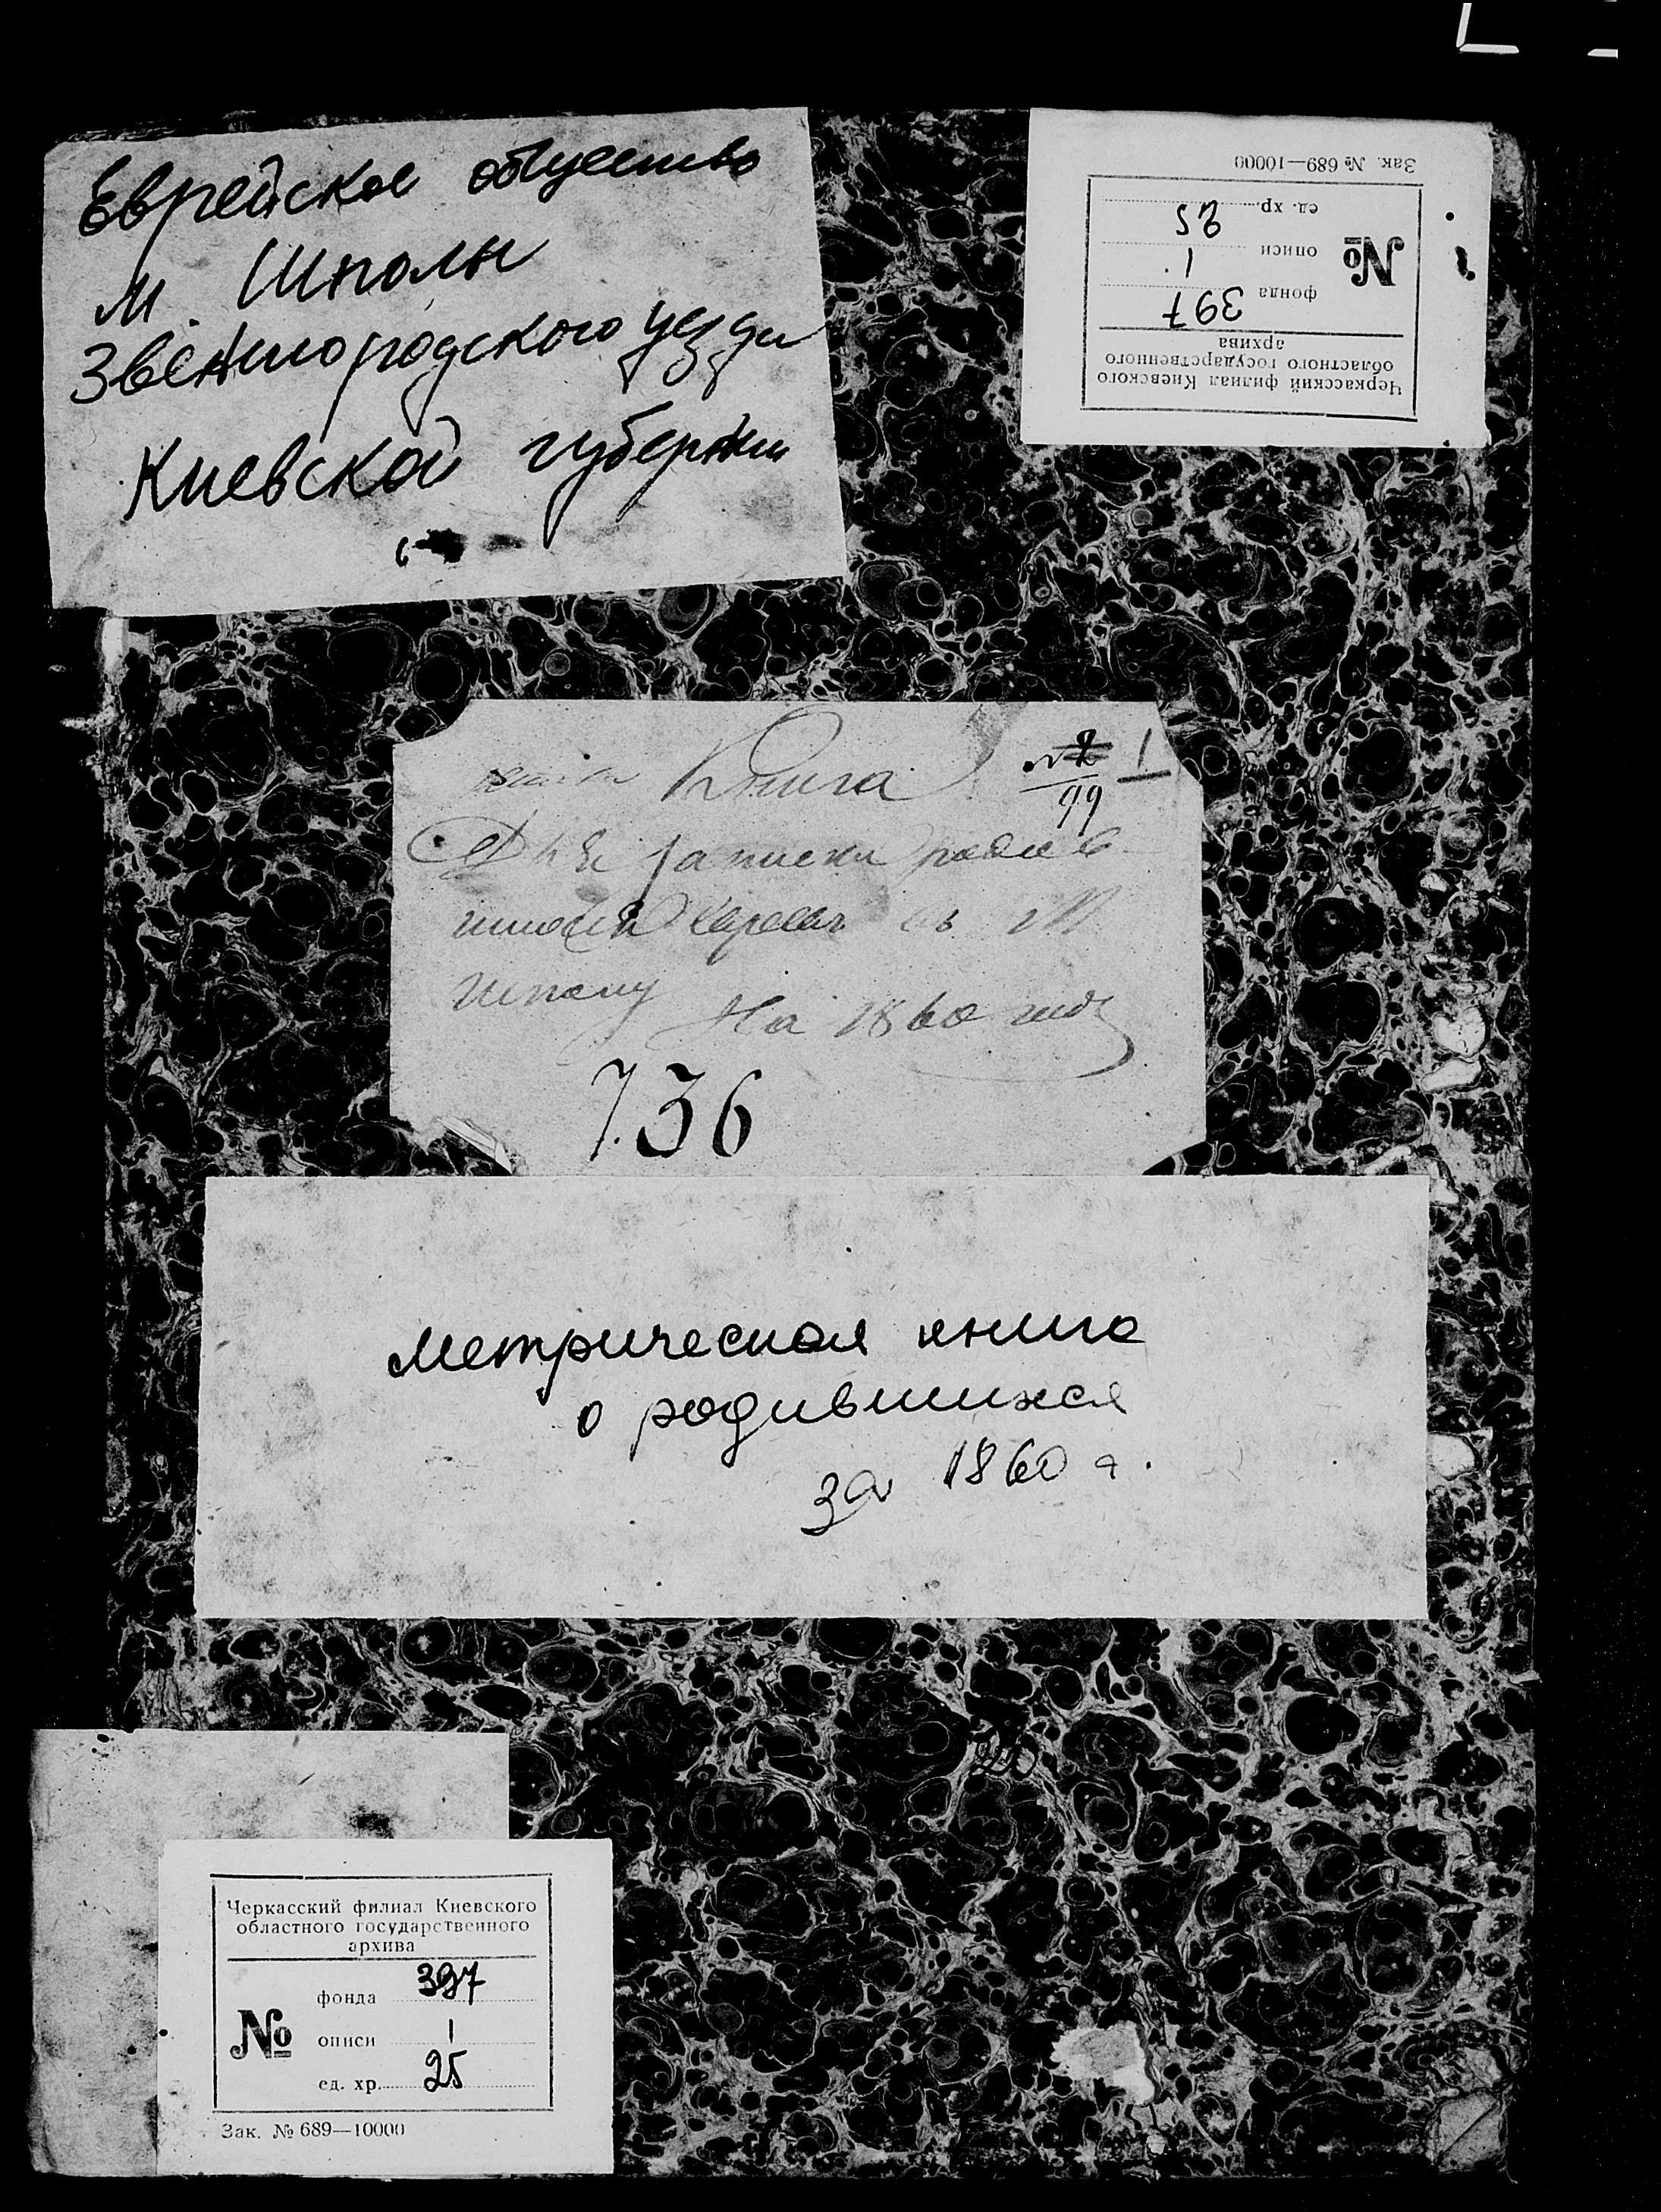 Еврейское общество
м. Шполы
Звенигородского уезда
Киевской губернии
Зак. № 689—10000
Черкасский филиал Киевского
областного государственного
архива
№
фонда 397
описи 1.
ед. хр. 25
Книга
№ 2 1
99
Для записки родив
шихся евреевъ въ М
Шполу
На 1860 годъ
736
Метрическая книга
о родившихся
за 1860 г.
Черкасский филиал Киевского
областного государственного
архива
№
фонда 397
описи 1
ед. хр. 25
Зак. № 689—10000